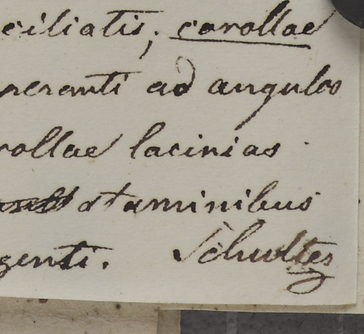 ciliatis; corollae
nerenti ad angulos
rollae lacinias
staminibus
genti. Schultes